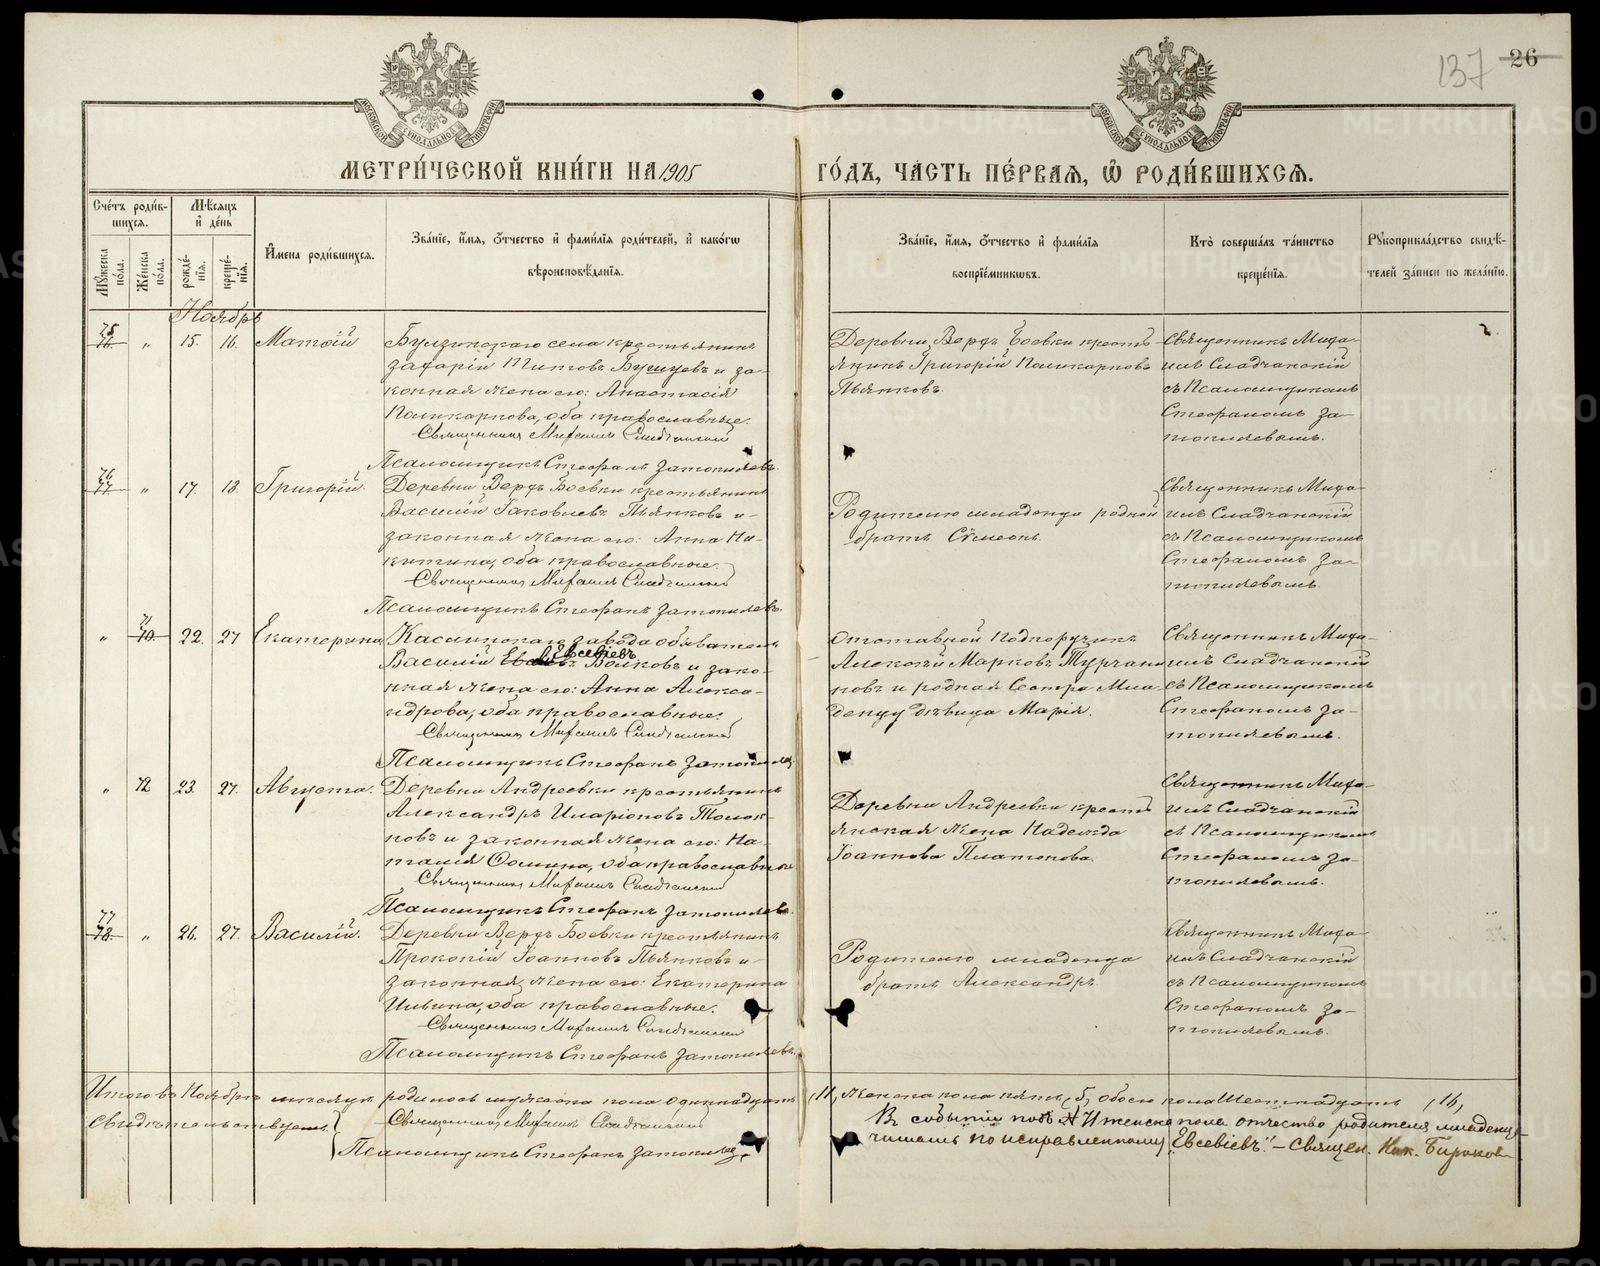 137 26
МЕТРИ́ЧЕСКОЙ КНИ́ГИ НА 1905 ГО́ДЪ, ЧА́СТЬ ПЕ́РВАѦ, Ѡ҆ РОДИ́ВШИХСѦ.
Сче́тъ роди́в-
шихсѧ.
Мѣ́сѧцъ
и҆ де́нь
Мꙋ́жеска
по́ла.
Же́нска
по́ла.
рожде́-
нїѧ.
креще́-
нїѧ.
И҆мена роди́вшихсѧ.
Зва́нїе, и҆́мѧ, ѻ҆́тчество и҆ фами́лїѧ роди́телей, и҆ како́гѡ
вѣроисповѣ́данїѧ.
Зва́нїе, и҆́мѧ, ѻ҆́тчество и҆ фами́лїѧ
воспрїе́мникѡвъ.
Кто̀ соверша́лъ та́инство
креще́нїѧ.
Рꙋкоприкла́дство свидѣ́-
телей за́писи по жела́нїю.
Ноябрь
75
76 " 15. 16. Матѳій
Булзинскаго села крестьянинъ
Захарій Титовъ Бушуевъ и за-
конная жена его: Анастасія
Поликарпова, оба православные.
Священникъ Михаилъ Сладчанскій
Псаломщикъ Стефанъ Затопляевъ.
Деревни Верхъ Боевки кресть-
янинъ Григорій Поликарповъ
Пьянковъ.
Священникъ Миха-
илъ Сладчанскій
съ Псаломщикомъ
Стефаномъ За-
топляевымъ.
76
77 " 17. 18. Григорій.
Деревни Верхъ Боевки крестьянинъ
Василій Іаковлевъ Пьянковъ и
законная жена его: Анна Ни-
китина, оба православные.
Священникъ Михаилъ Сладчанскій
Псаломщикъ Стефанъ Затопляевъ.
Родителю младенца родной
братъ Сѵмеонъ.
Священникъ Миха-
илъ Сладчанскій
съ Псаломщикомъ
Стефаномъ За-
топляевымъ.
" 71
70 22. 27 Екатерина
Каслинскаго завода обыватель
Василій Евсевіевъ Волковъ и зако-
нная жена его: Анна Алекса-
ндрова, оба православные.
Священникъ Михаилъ Сладчанскій
Псаломщикъ Стефанъ Затопляев
Отставной Подпоручикъ
Алексѣй Марковъ Турчани-
новъ и родная Сестра Мла-
денцу дѣвица Марія.
Священникъ Миха-
илъ Сладчанскій
съ Псаломщикомъ
Стефаномъ За-
топляевымъ.
" 72 23. 27. Августа.
Деревни Андреевки крестьянинъ
Александръ Иларіоновъ Толок-
новъ и законная жена его: На-
талія Ѳомина, оба православные
Священникъ Михаилъ Сладчанскій
Псаломщикъ Стефанъ Затопляевъ.
Деревни Андреевки кресть-
янская жена Надежда
Іоаннова Платонова.
Священникъ Миха-
илъ Сладчанскій
съ Псаломщикомъ
Стефаномъ За-
топляевымъ.
77
78 " 26. 27. Василій.
Деревни Верхъ Боевки крестьянинъ
Прокопій Іоанновъ Пьянковъ и
законная жена его: Екатерина
Ильина, оба православные.
Священникъ Михаилъ Сладчанскій
Псаломщикъ Стефанъ Затопляевъ.
Родителю младенца
братъ Александръ.
Священникъ Миха-
илъ Сладчанскій
съ Псаломщикомъ
Стефаномъ За-
топляевымъ.
Итого въ Ноябрѣ мѣсяцѣ родилось мужеска пола одиннадцать, 11, женска пола пять, 5, обоего пола Шестнадцать, 16,
свидѣтельствуемъ:
Священникъ Михаилъ Сладчанскій
Псаломщикъ Стефанъ Затопляев
Въ событіи подъ № 71 женска пола отчество родителя младенца
читать по исправленному "Евсевіевъ". – Священ. Ник. Бирюков